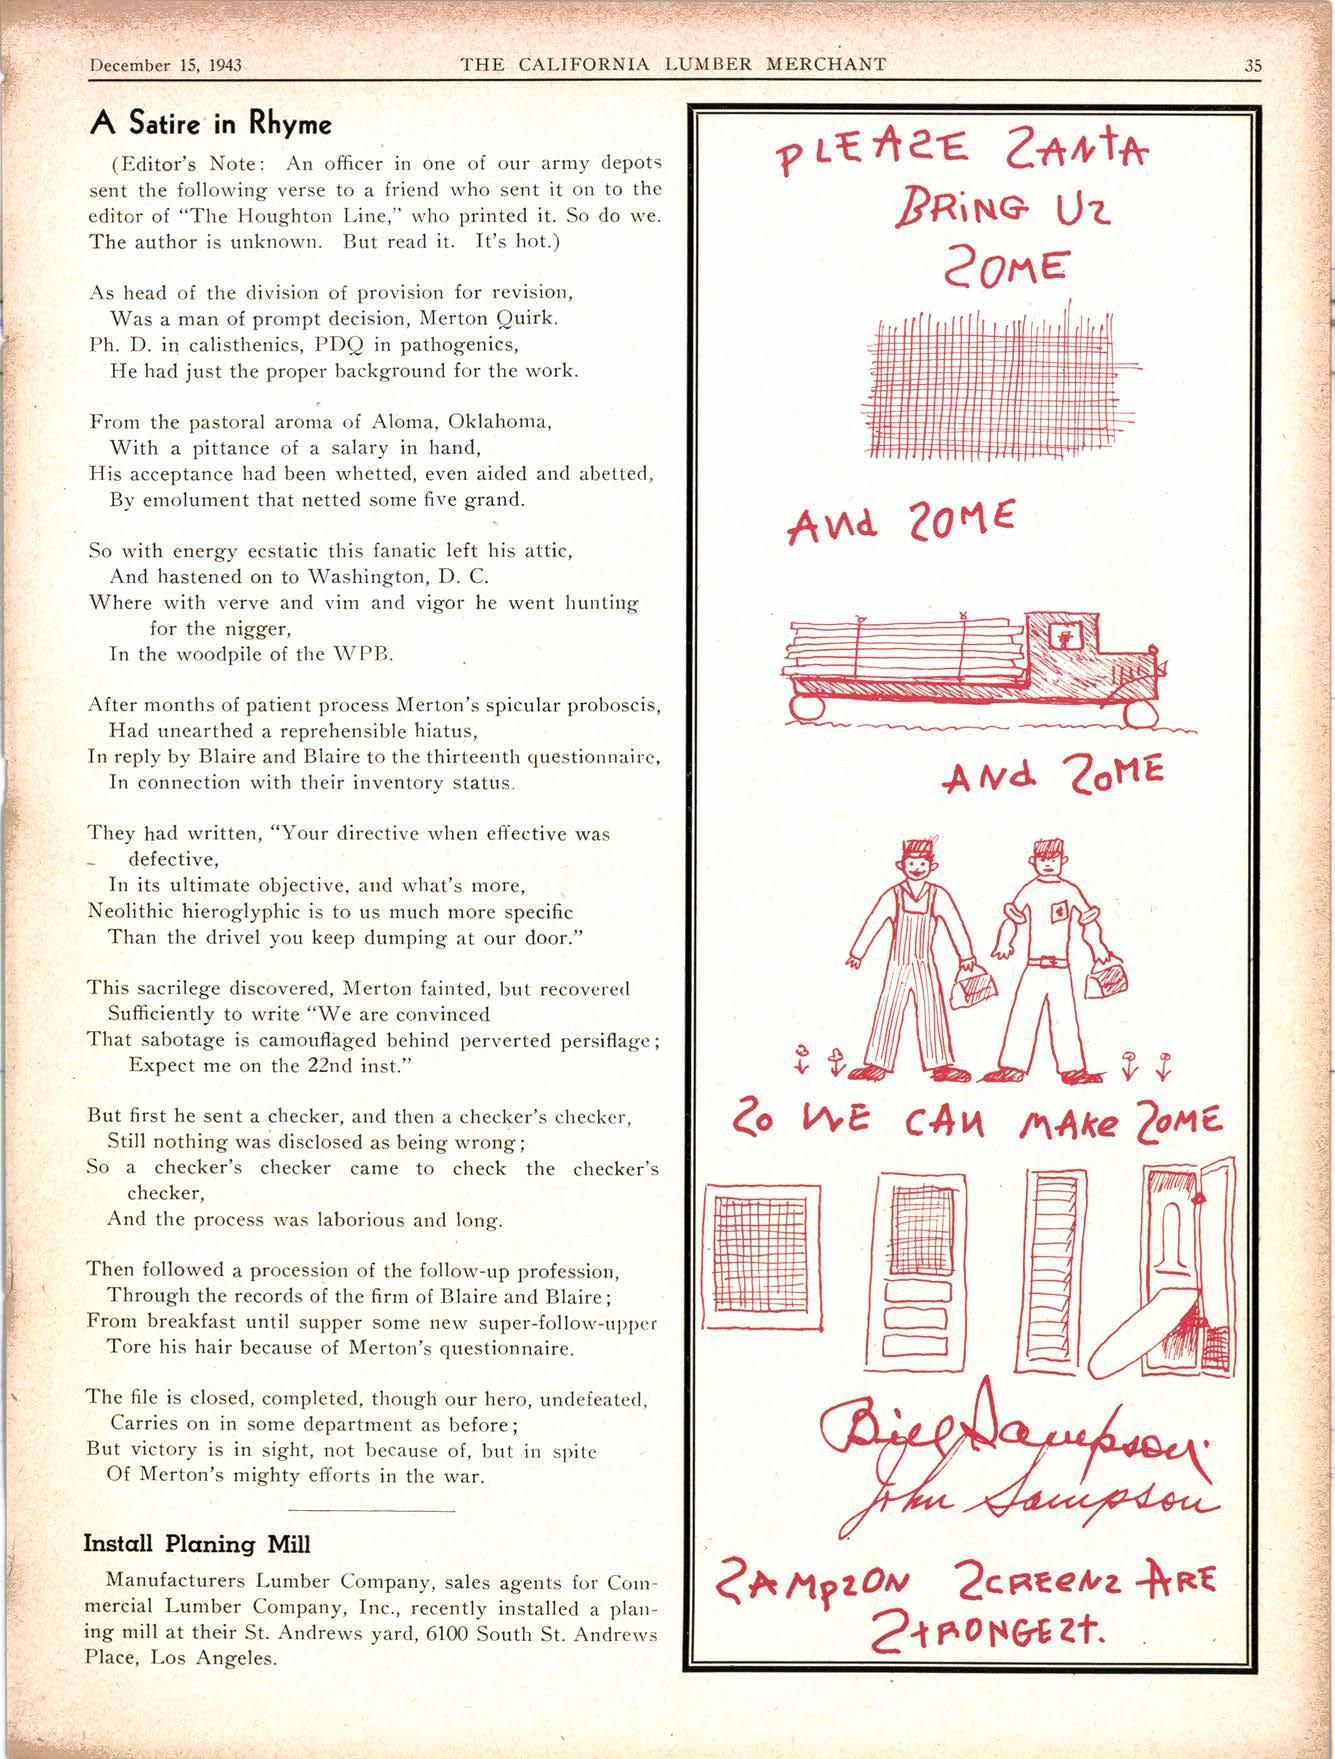 December 15, 1943
THE CALIFORNIA LUMBER MERCHANT
35
A Satire in Rhyme
(Editor's Note: An officer in one of our army depots
sent the following verse to a friend who sent it on to the
editor of "The Houghton Line," who printed it. So do we.
The author is unknown. But read it. It's hot.)
As head of the division of provision for revision,
Was a man of prompt decision, Merton Quirk.
Ph. D. in calisthenics, PDQ in pathogenics,
He had just the proper background for the work.
From the pastoral aroma of Aloma, Oklahoma,
With a pittance of a salary in hand,
His acceptance had been whetted, even aided and abetted,
By emolument that netted some five grand.
So with energy ecstatic this fanatic left his attic,
And hastened on to Washington, D. C.
Where with verve and vim and vigor he went hunting
for the nigger,
In the woodpile of the WPB.
After months of patient process Merton's spicular proboscis,
Had unearthed a reprehensible hiatus,
In reply by Blaire and Blaire to the thirteenth questionnaire,
In connection with their inventory status.
They had written, "Your directive when effective was
defective,
In its ultimate objective, and what's more,
Neolithic hieroglyphic is to us much more specific
Than the drivel you keep dumping at our door."
This sacrilege discovered, Merton fainted, but recovered
Sufficiently to write "We are convinced
That sabotage is camouflaged behind perverted persiflage;
Expect me on the 22nd inst."
But first he sent a checker, and then a checker's checker,
Still nothing was disclosed as being wrong;
So a checker's checker came to check the checker's
checker,
And the process was laborious and long.
Then followed a procession of the follow-up profession,
Through the records of the firm of Blaire and Blaire;
From breakfast until supper some new super-follow-upper
Tore his hair because of Merton's questionnaire.
The file is closed, completed, though our hero, undefeated,
Carries on in some department as before;
But victory is in sight, not because of, but in spite
Of Merton's mighty efforts in the war.
Install Planing Mill
Manufacturers Lumber Company, sales agents for Com-
mercial Lumber Company, Inc., recently installed a plan-
ing mill at their St. Andrews yard, 6100 South St. Andrews
Place, Los Angeles.
PLEAZE ZANtA
BRiNG UZ
ZOME
ANd ZOME
ANd ZoME
Zo WE CAN MAKe ZOME
Bill Sampson
John Sampson
ZAMpZON ZCREeNZ ARE
ZtRONGEZt.